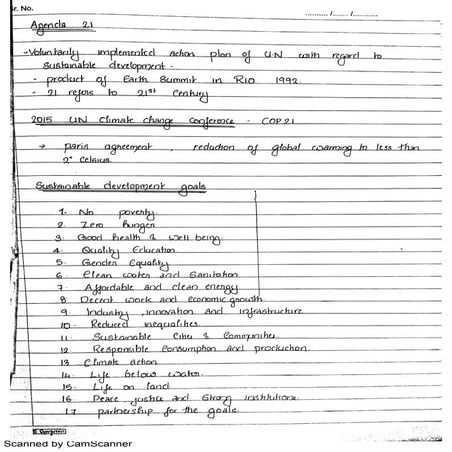 r. No.
Agenda 21
-Voluntarily implemented action plan of UN with regard to
sustainable development.
- product of Earth Summit in Rio 1992.
- 21 refers to 21st Century
2015 UN Climate change Conference - COP 21
→ paris agreement, reduction of global warming to less than
2° Celsius.
Sustainable development goals
1. No poverty
2. Zero hunger
3. Good health & well being
4. Quality Education
5. Gender Equality
6. Clean water and Sanitation
7. Affordable and clean energy
8 Decent work and economic growth
9 Industry, innovation and infrastructure
10. Reduced inequalities
11. Sustainable Cities & Communities
12 Responsible Consumption and production
13 Climate action
14. Life below water
15. Life on land
16 Peace, justice and Strong institutions
17 partnership for the goals.
Scanned by CamScanner